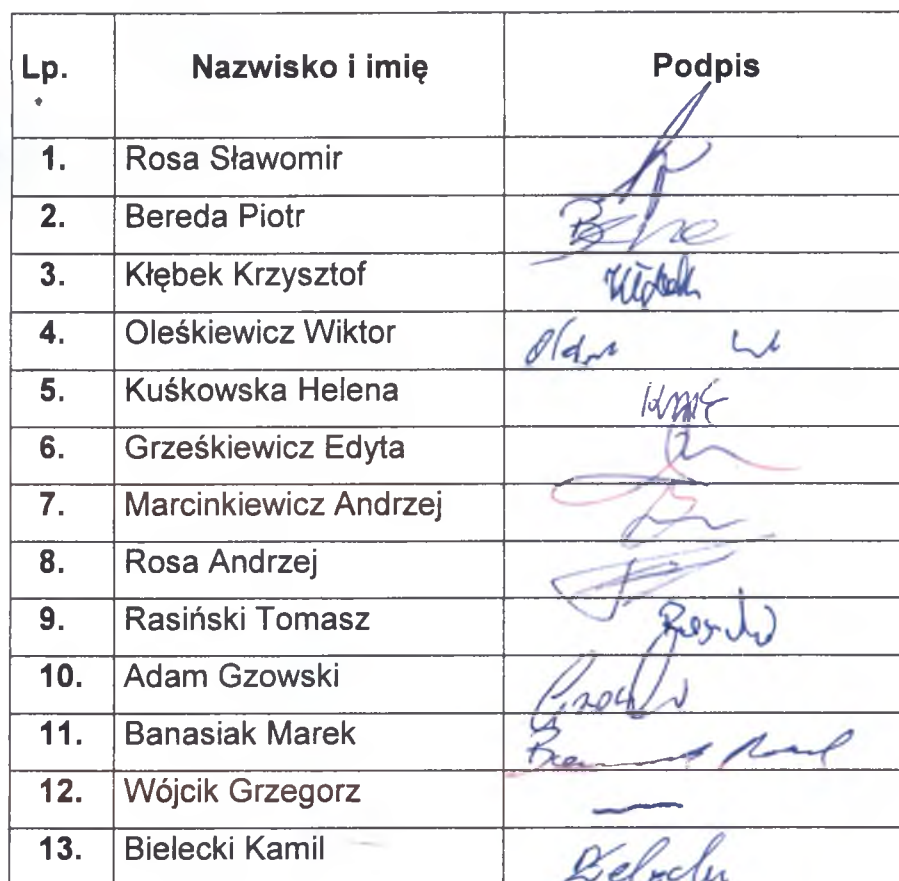 Lp. Nazwisko i imię Podpis
1. Rosa Sławomir
2. Bereda Piotr
3. Kłębek Krzysztof
4. Oleśkiewicz Wiktor
5. Kuśkowska Helena
6. Grześkiewicz Edyta
7. Marcinkiewicz Andrzej
8. Rosa Andrzej
9. Rasiński Tomasz
10. Adam Gzowski
11. Banasiak Marek
12. Wójcik Grzegorz
13. Bielecki Kamil